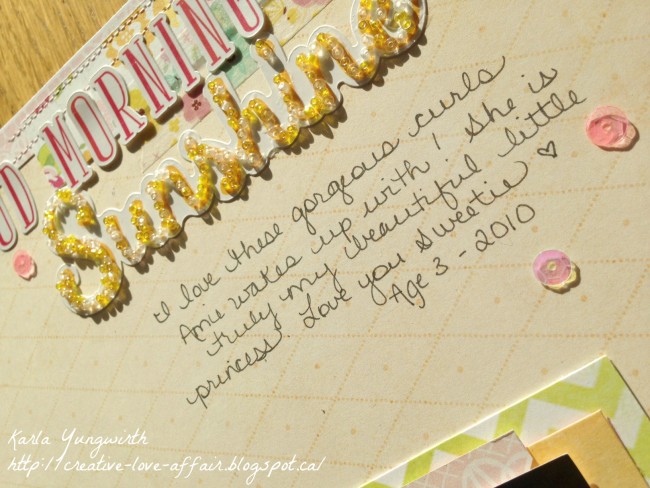 OD MORNING
Sunshine
I love these gorgeous curls
Amu wakes up with! She is
truly my beautiful little
princess. Love you Sweetie ♡
Age 3 - 2010
Karla Yungwirth
http://creative-love-affair.blogspot.ca/